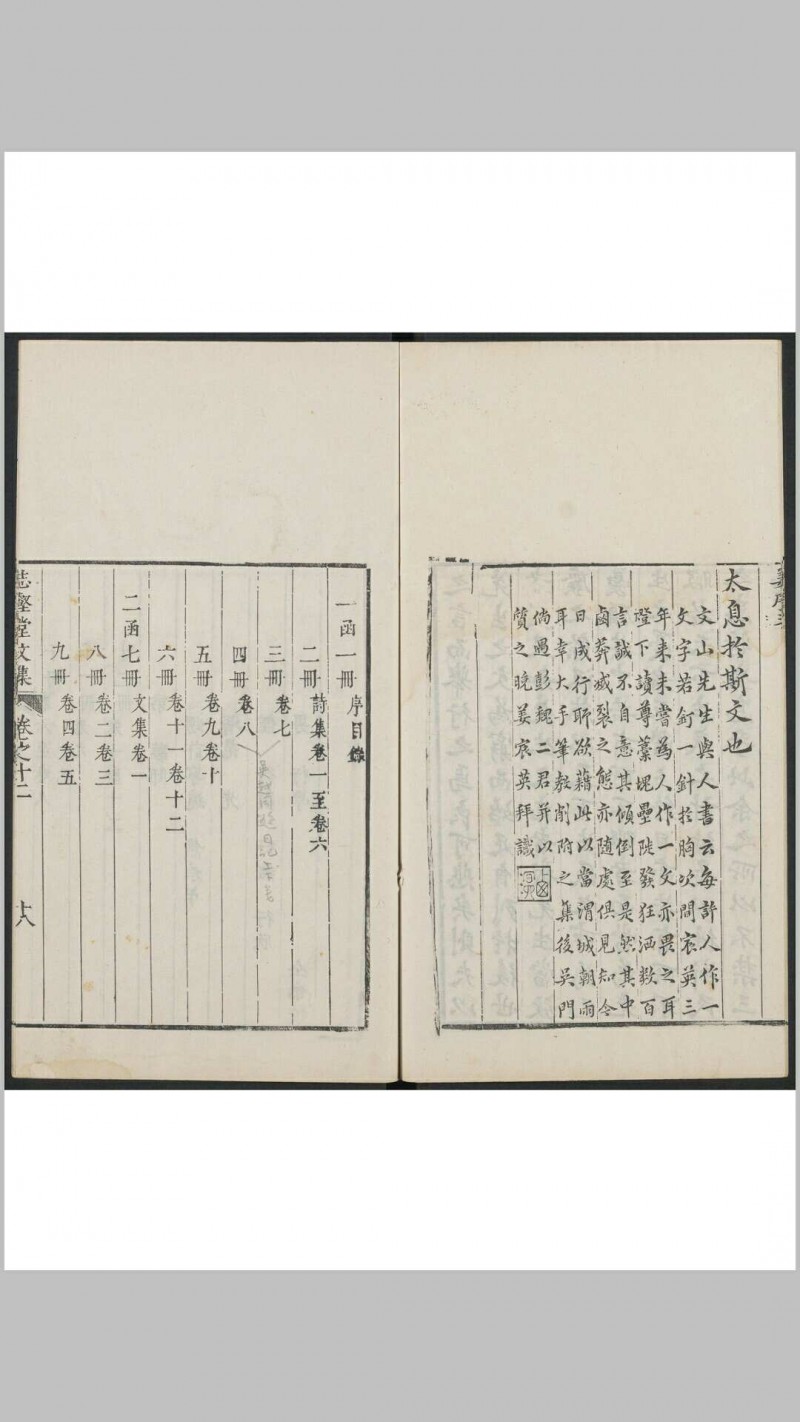 太息於斯文也
文山先生與人書云每許人作一
文字若釘一針於胸次間宸英三
年來未嘗為人作一文亦畏之耳
燈下讀尊藁塊壘陡發狂洒数百
言誠不自意其傾倒至是然其中
鹵莽滅裂之態亦随處俱見知令
日成行聊欲藉此以當渭城朝雨
耳幸大手筆教削附之集後吳門
倘過彭魏二君并以
質之晚姜宸英拜識
一函一冊 序目錄
二冊 詩集卷一至卷六
三冊 卷七
四冊 卷八
五冊 卷九卷十
六冊 卷十一卷十二
二函七冊 文集卷一
八冊 卷二卷三
九冊 卷四卷五
志壑堂文集 卷之十二